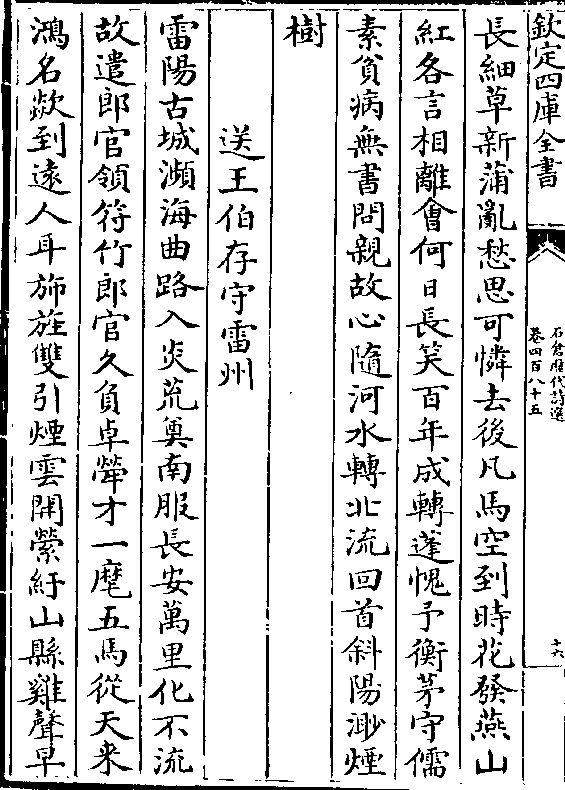 欽定四庫全書
石倉歷代詩選
卷四百八十五
十六
長細草新蒲亂愁思可憐去後凡馬空到時花發燕山
紅各言相離會何日長笑百年成轉蓬愧予衡茅守儒
素貧病無書問親故心隨河水轉北流回首斜陽渺煙
樹
送王伯存守雷州
雷陽古城瀕海曲路入炎荒奠南服長安萬里化不流
故遣郎官領符竹郎官久負卓犖才一麾五馬從天來
鴻名歘到遠人耳旆旌雙引煙雲開縈紆山縣雞聲早